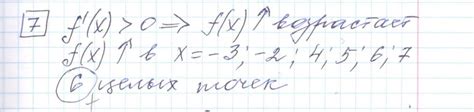 7 f'(x) > 0 ⟹ f(x) ↑ возрастает
f(x) ↑ в x = -3; -2; 4; 5; 6; 7
6 целых точек